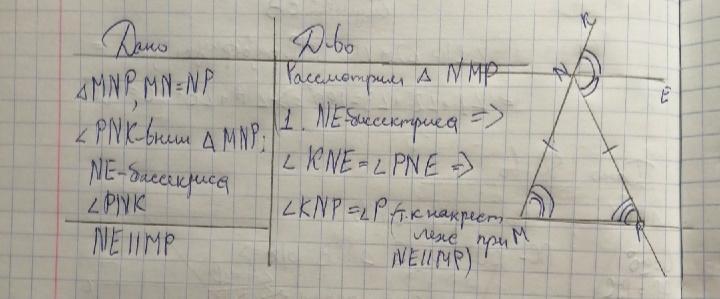 Дано
△MNP, MN=NP
∠PNK-внеш △MNP;
NE-биссекриса
∠PNK
NE||MP
Д-во
Рассмотрим △ NMP
1. NE-биссектриса =>
∠ KNE = ∠PNE =>
∠KNP=∠P (т.к накрест
леже при
NE||MP)
K
N
E
M
P